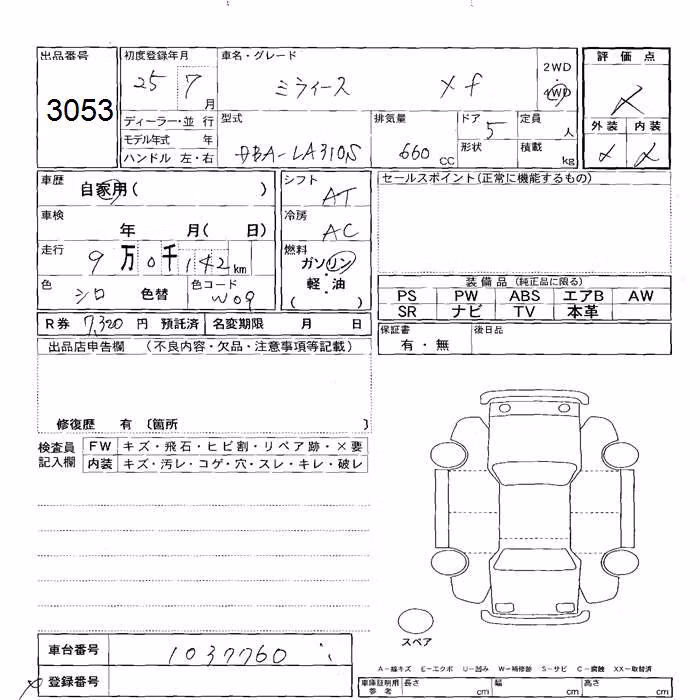 出品番号
3053
初度登録年月 25 7 月
車名・グレード ミライース Xf
2WD
4WD
評価点
ディーラー・並行
モデル年式 年
ハンドル 左・右
型式 DBA-LA310S
排気量 660 CC
ドア 5
形状
定員 人
積載 kg
外装 内装
車歴 自家用( )
車検 年 月( 日)
走行 9万0千142km
色 シロ 色替
色コード W09
シフト AT
冷房 AC
燃料 ガソリン
軽・油
( )
セールスポイント(正常に機能するもの)
装備品(純正品に限る)
PS PW ABS エアB AW
SR ナビ TV 本革
R券 7,320 円 預託済 名変期限 月 日
保証書 有・無
後日品
出品店申告欄 (不良内容・欠品・注意事項等記載)
修復歴 有 〔箇所 〕
検査員記入欄
FW キズ・飛石・ヒビ割・リペア跡・×要
内装 キズ・汚レ・コゲ・穴・スレ・キレ・破レ
スペア
車台番号 1037760
登録番号
A-線キズ E-エクボ U-凹み W-補修跡 S-サビ C-腐蝕 XX-取替済
車庫証明用参考 長さ cm 幅 cm 高さ cm